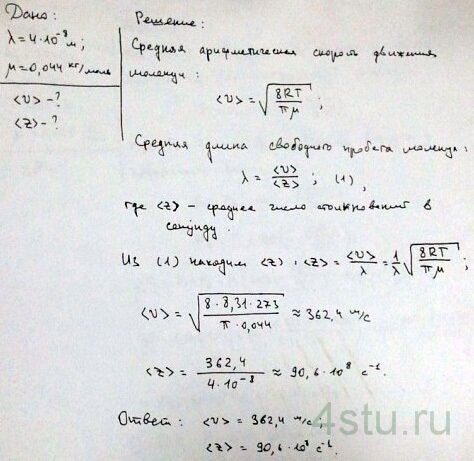 Дано:
λ = 4·10⁻⁸ м;
μ = 0,044 кг/моль
<υ> - ?
<z> - ?
Решение:
Средняя арифметическая скорость движения
молекул:
<υ> = √(8RT/πμ) ;
Средняя длина свободного пробега молекул:
λ = <υ>/<z> ; (1),
где <z> - среднее число столкновений в
секунду.
Из (1) находим <z>: <z> = <υ>/λ = 1/λ √(8RT/πμ) ;
<υ> = √(8·8,31·273/π·0,044) ≈ 362,4 м/с
<z> = 362,4/4·10⁻⁸ ≈ 90,6·10⁸ с⁻¹.
Ответ: <υ> = 362,4 м/с;
<z> = 90,6·10⁸ с⁻¹.
4stu.ru